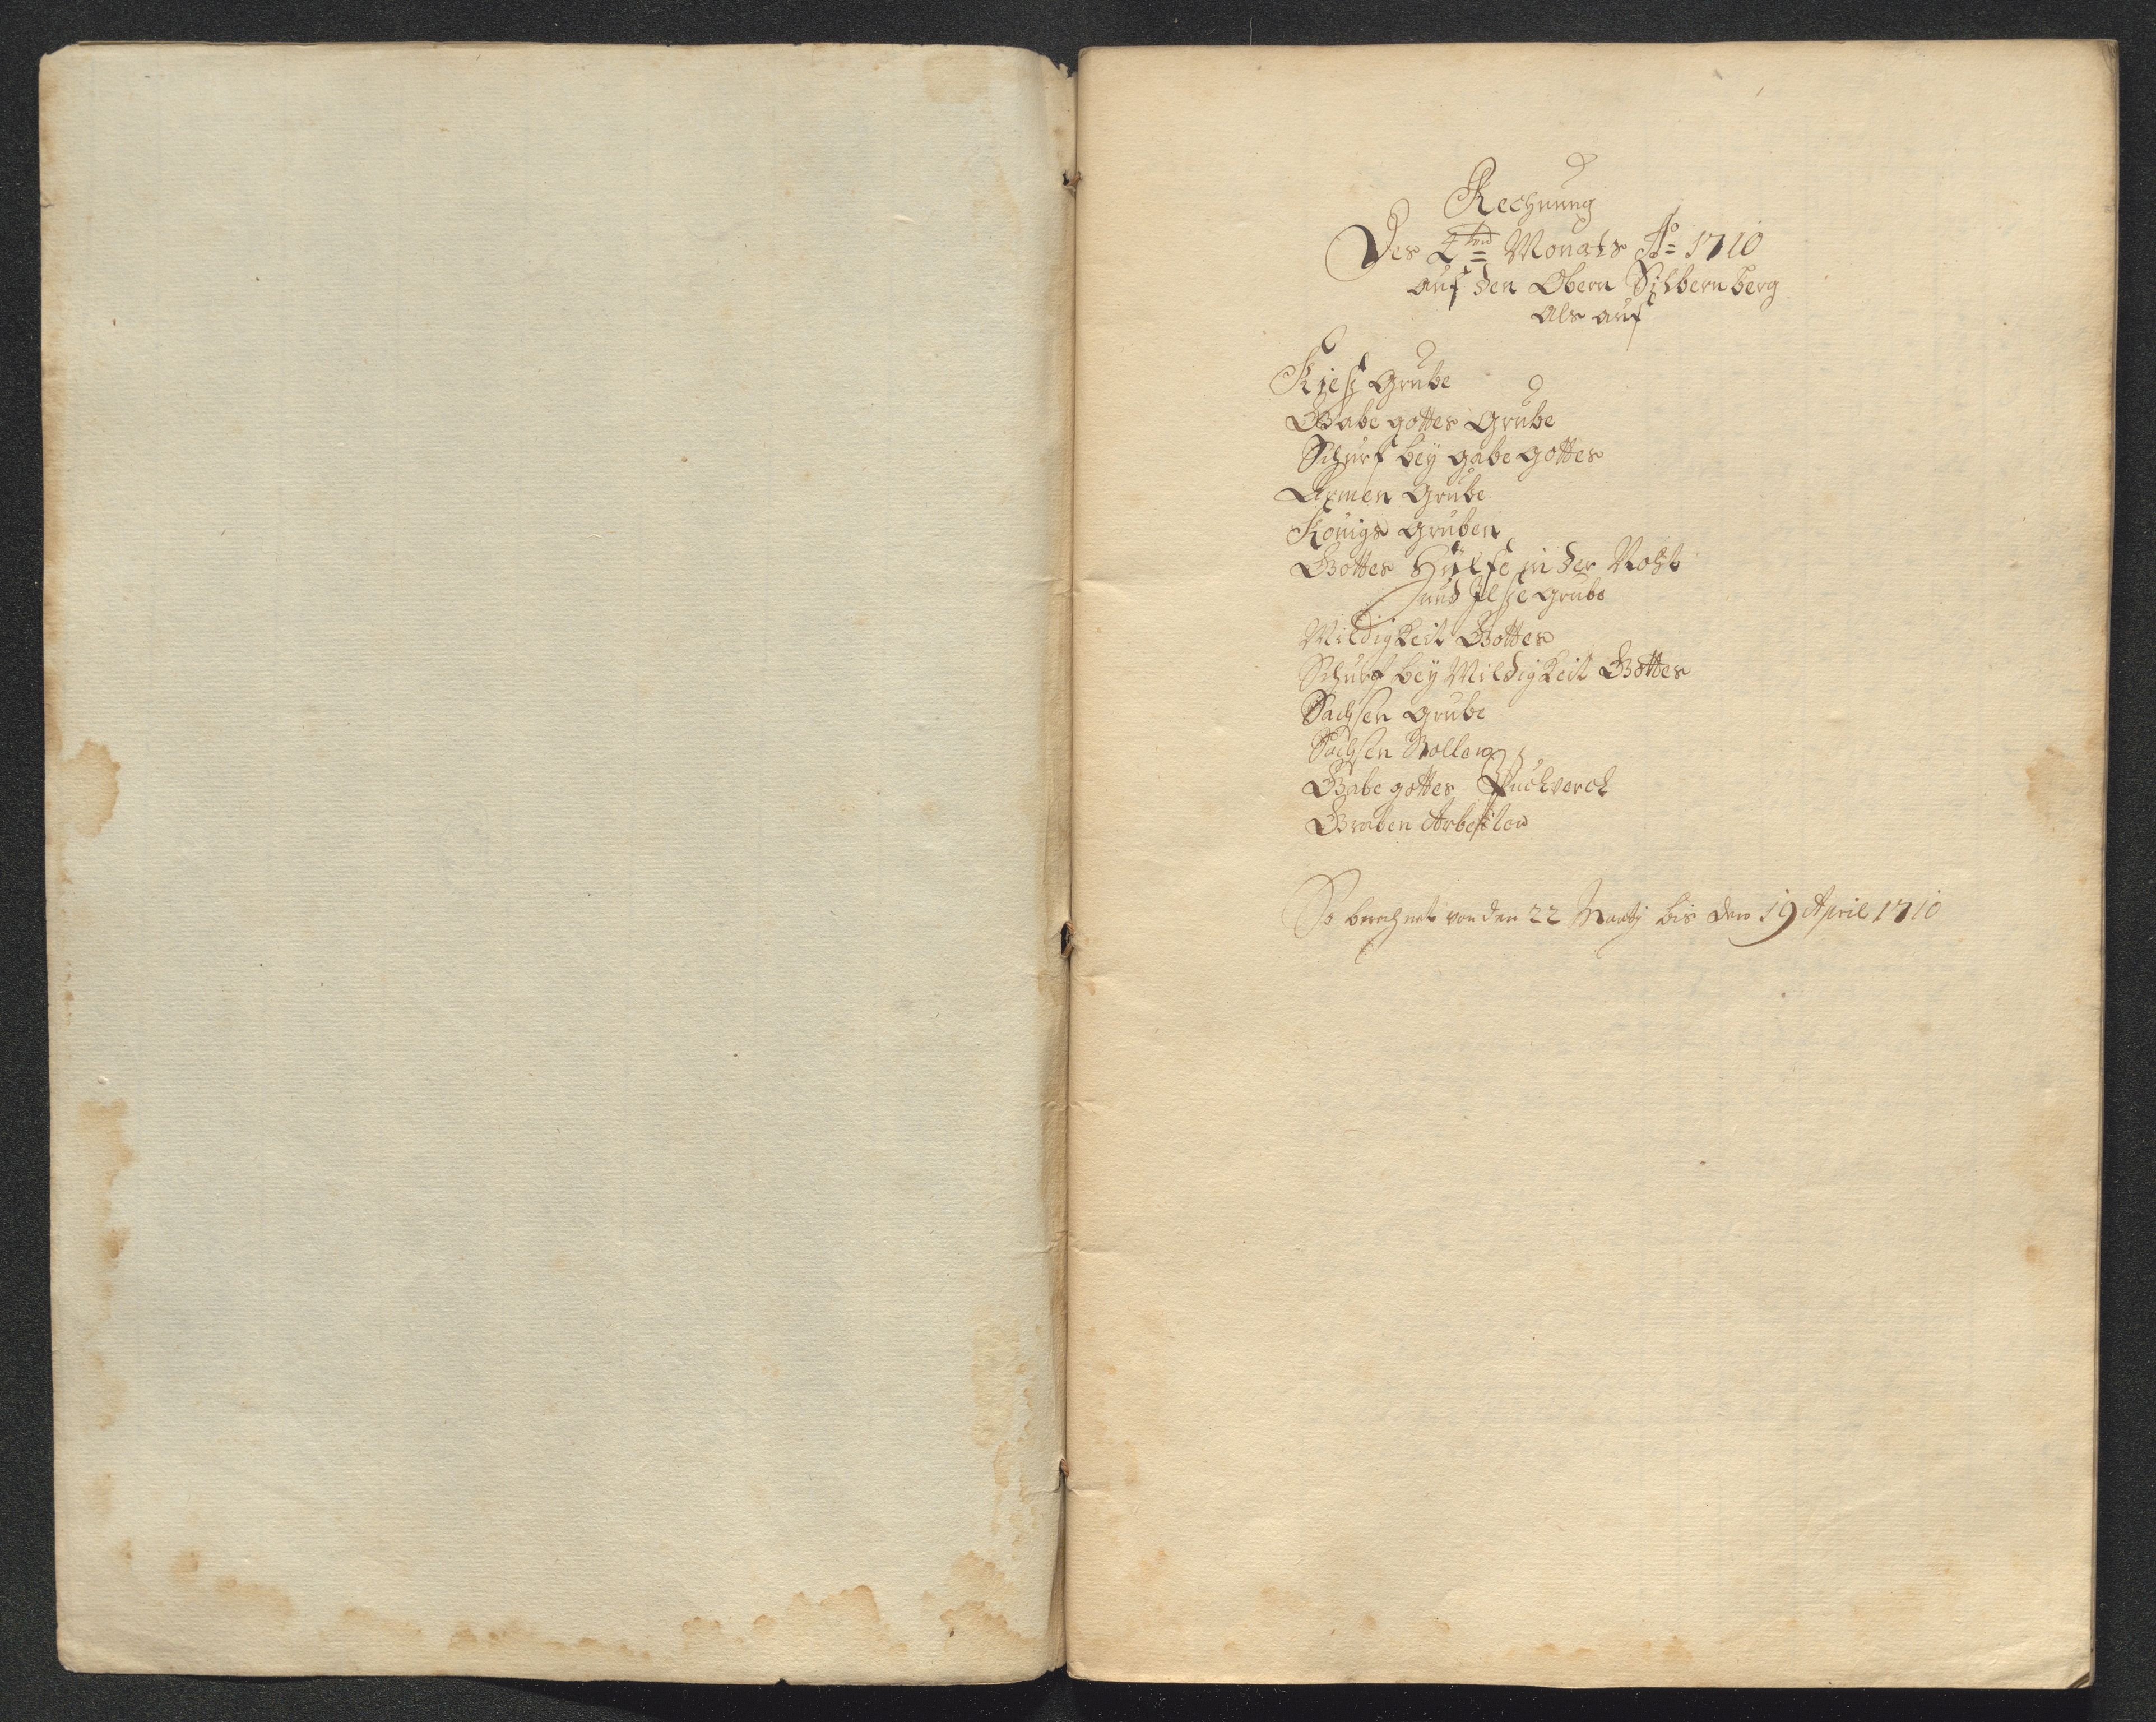 Rechnung
Des 4ten Monats Ao 1710
auf den Obern Silbernberg
als auf
Kiesz Grube
Gabe gottes Grube
Schurf bey gabe gottes
Armen Grube
Königs Gruben
Gottes Hülfe in der Noht
und Ilsze Grube
Mildigkeit Gottes
Schurf bey Mildigkeit Gottes
Sachsen Grube
Sachsen Stollen
Gabe gottes Puckwerck
Graben Arbeiten
So berechnet von den 22 Martij bis den 19 April 1710